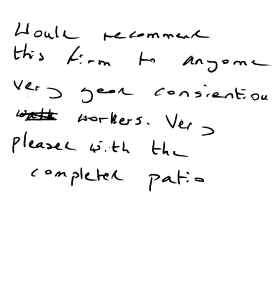 Would recommend
this firm to anyone
Very good consientiou
workers. Very
pleased with the
completed patio